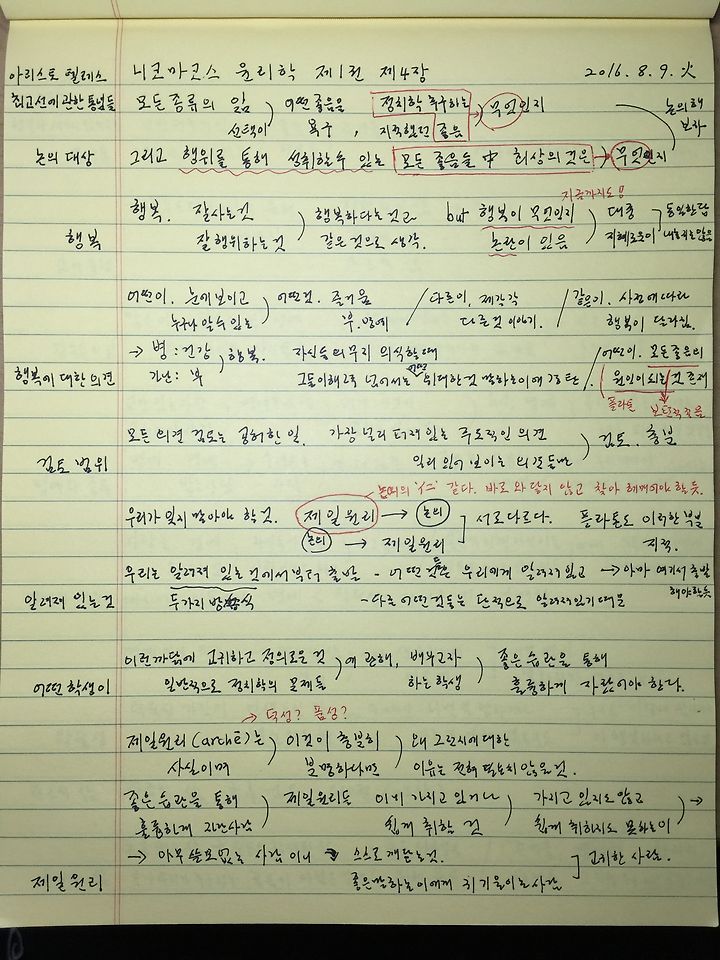 아리스토텔레스 니코마코스 윤리학 제1권 제4장 2016. 8. 9. 火
최고선에 관한 통념들 모든 종류의 앎 ) 어떤 좋음을 정치학 추구하는 → 무엇인지 논의해
선택이 욕구, 지적했던 좋음 보자
논의 대상 그리고 행위를 통해 성취할 수 있는 모든 좋음들 中 최상의 것은 → 무엇인지
지금까지도!!
행복. 잘사는것 ) 행복하다는것과 but 행복이 무엇인지 ) 대중 ) 동일한답
행복 잘 행위하는 것 같은 것으로 생각. 논란이 있음 지혜로운이 내놓지는않음
어떤이. 눈에 보이고 ) 어떤것. 즐거움 / 다른이. 제각각 / 같은이. 사정에 따라
누구나 알 수 있는 부. 명예 다른것 이야기. 행복이 달라짐.
→ 병 : 건강 ) 행복. 자신들의 무지 의식할때 / 어떤이. 모든 좋음의
행복에 대한 의견 가난 : 부 그들이해 넘어서는 어떤 위대한것 말하는이에 경탄 /. 원인이 되는 것 존재
플라톤
모든 의견 검토는 공허한 일. 가장 널리 퍼져 있는 주도적인 의견 ) 검토. 충분
검토 범위 일리 있어 보이는 의견들만
논어의 '仁' 같다. 바로 와 닿지 않고 찾아 헤매어야 할 듯.
우리가 잊지 말아야 할 것. 제일원리 → 논의 ] 서로다르다. 플라톤도 이러한 부분
논의 → 제일원리 지적.
우리는 알려져 있는 것에서부터 출발 - 어떤 것들은 우리에게 알려져 있고 → 아마 여기서 출발
알려져 있는것 두가지 방식 - 다른 어떤것들은 단적으로 알려져있기 때문 해야 할 듯
이런까닭에 고귀하고 정의로운 것 ) 에 관해, 배우고자 ) 좋은 습관을 통해
어떤 학생이 일반적으로 정치학의 문제들 하는 학생 훌륭하게 자랐어야 한다.
→ 덕성? 품성?
제일원리 (archē)는 ) 이것이 충분히 ) 왜 그런지에 대한
사실이며 분명하다면 이유는 전혀 필요치 않을 것.
좋은 습관을 통해 ) 제일원리를 이미 가지고 있거나 ) 가지고 있지도 않고 ) →
훌륭하게 자란사람 쉽게 취할 것 쉽게 취하지도 못하는이
→ 아무 쓸모없는 사람이니 스스로 깨닫는것. ] 고귀한 사람.
제일원리 좋은말하는이에게 귀 기울이는사람